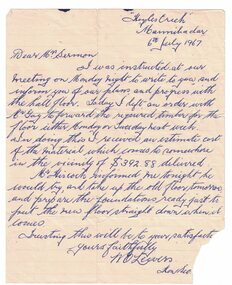 Hoyles Creek
Marmibadar
6th July 1967
Dear Mr Sermon
I was instructed at our
meeting on Monday night to write to you and
inform you of our plans and progress with
the hall floor. Today I left an order with
Mr Guy to forward the required timber for the
floor either Monday or Tuesday next week.
In doing this I received an estimate cost
of the material which comes to somewhere
in the vicinity of $392.88 delivered
Mr informed me tonight he
would try and take up the old floor tomorrow
and prepare the foundations ready just to
put the new floor straight down when it
comes
Trusting this will be to your satisfaction
Yours faithfully